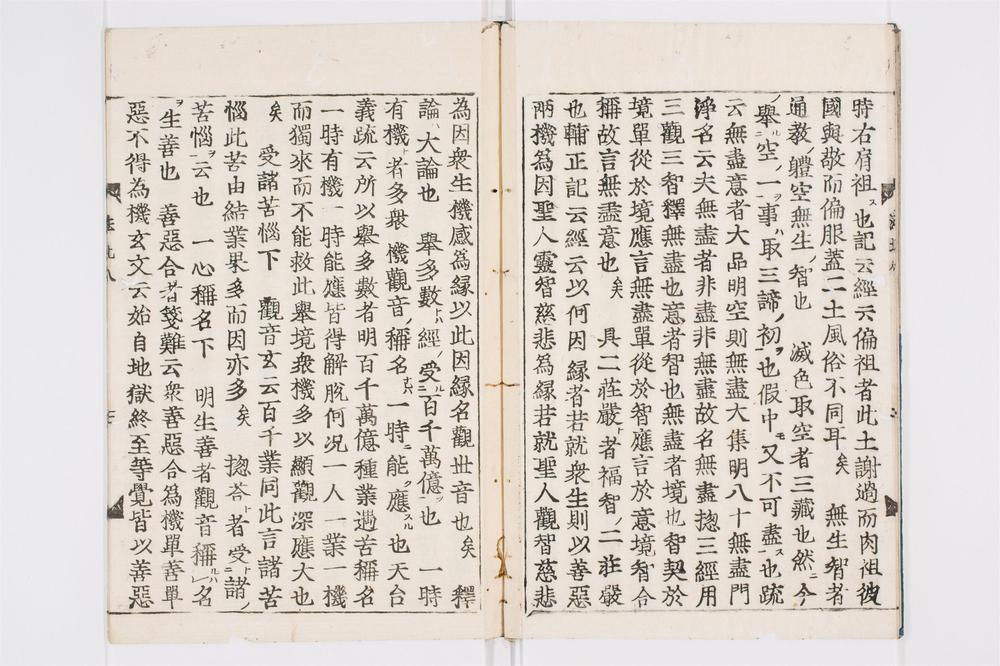 時右肩袒ス也記云經云偏袒者此土謝過而肉袒彼
國與敬而偏服蓋二土風俗不同耳矣　無生智者
通教體空無生ノ智也　滅色取空者三藏也然ニ今
ノ擧ルニ空ノ一ヲ事ハ取三諦ノ初ヲ也假中モ又不可盡ス也疏
云無盡意者大品明空則無盡大集明八十無盡門
淨名云夫無盡者非盡非無盡故名無盡揔三經用
三觀三智釋無盡也意者智也無盡者境也智契於
境單從於境應言無盡單從於智應言於意境智合
稱故言無盡意也矣　具二莊嚴ト者福智ノ二莊嚴
也輔正記云經云以何因緣者若就衆生則以善惡
兩機爲因聖人靈智慈悲爲緣若就聖人觀智慈悲
為因衆生機感爲緣以此因緣名觀世音也矣　釋
論ハ大論也　擧多數トハ經ノ受ルニ百千萬億ヲ也　一時
有機ト者多衆ノ機觀音ノ稱名一時ニ能ク應スル也天台
義疏云所以擧多數者明百千萬億種業遇苦稱名
一時有機一時能應皆得解脫何況一人一業一機
而獨來而不能救此擧境衆機多以顯觀深應大也
矣　受諸苦惱下　觀音玄云百千業同此言諸苦
惱此苦由結業果多而因亦多矣　揔荅ト者受ト諸ノ
苦惱ヲ云也　一心稱名下　明生善者觀音稱ルハ名
ヲ生善也　善惡合者箋難云衆善惡合爲機單善單
惡不得為機玄文云始自地獄終至等覺皆以善惡